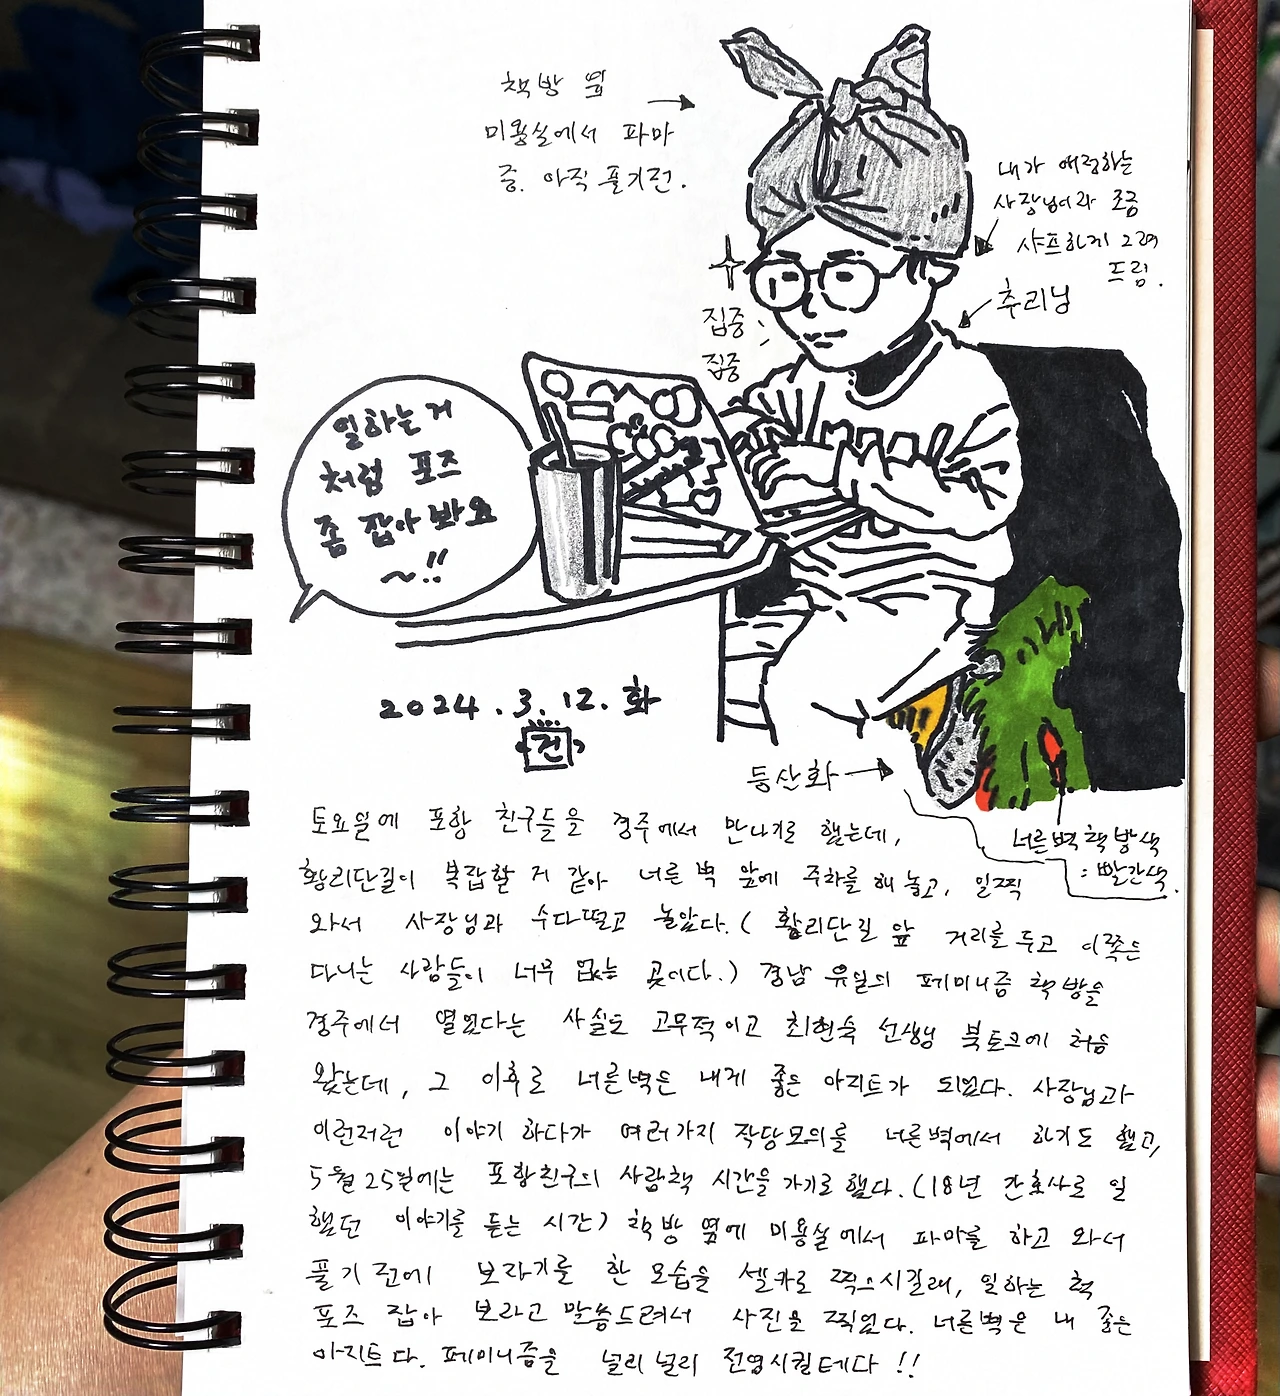 책방 옆
미용실에서 파마
중. 아직 풀기전.
내가 애정하는
사장님이라 조금
샤프하게 그려
드림.
추리닝
집중
집중
일하는거
처럼 포즈
좀 잡아봐요
~!!
2024.3.12.화
건
등산화
너른벽책방색
: 빨간색.
토요일에 포항 친구들을 경주에서 만나기로 했는데,
황리단길이 복잡할 거 같아 너른벽 앞에 주차를 해 놓고, 일찍
와서 사장님과 수다떨고 놀았다. (황리단길 앞 거리를 두고 이쪽은
다니는 사람들이 너무 없는 곳이다.) 경남 유일의 페미니즘 책방을
경주에서 열었다는 사실도 고무적이고 최현숙 선생님 북토크에 처음
왔는데, 그 이후로 너른벽은 내게 좋은 아지트가 되었다. 사장님과
이런저런 이야기 하다가 여러가지 작당모의를 너른벽에서 하기도 했고,
5월 25일에는 포항친구의 사람책 시간을 가기로 했다. (18년 간호사로 일
했던 이야기를 듣는 시간) 책방 옆에 미용실에서 파마를 하고 와서
풀기 전에 보자기를 한 모습을 셀카로 찍으시길래, 일하는 척
포즈 잡아 보라고 말씀드려서 사진을 찍었다. 너른벽은 내 좋은
아지트다. 페미니즘을 널리널리 전염시킬테다!!